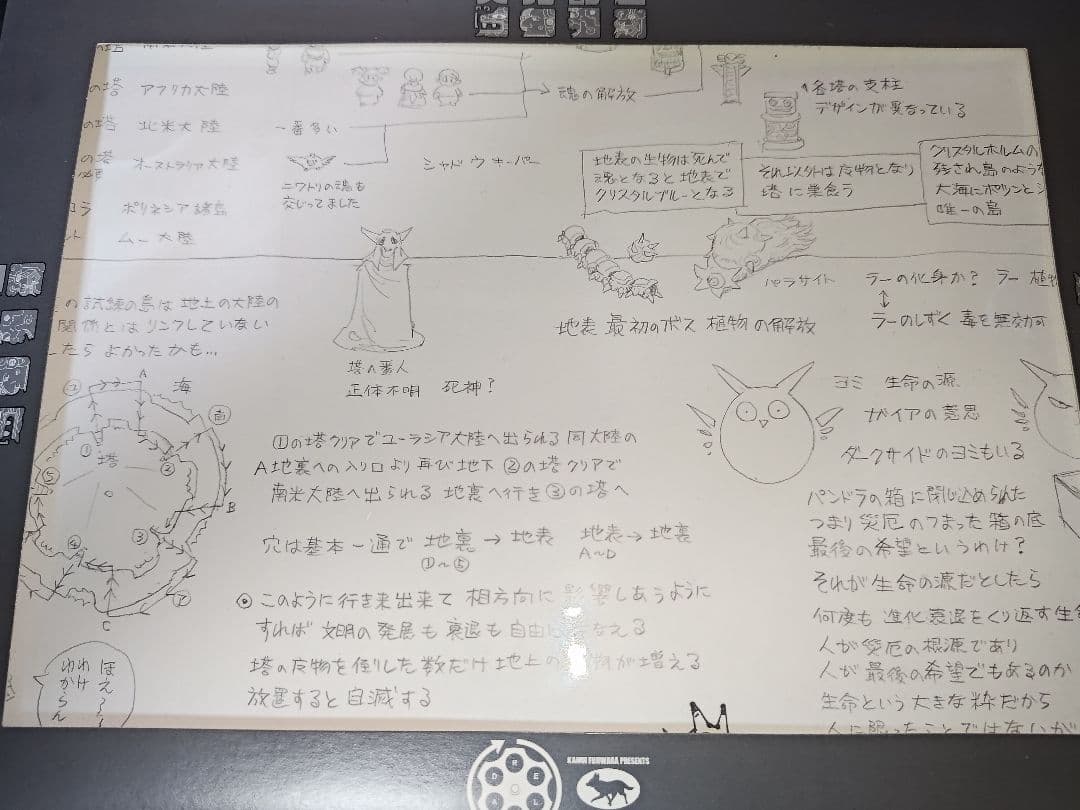 の塔 アフリカ大陸
の塔 北米大陸
の塔 オーストラリア大陸
ポリネシア諸島
ムー大陸
一番多い
ニワトリの魂も
交じってました
魂の解放
シャドウキーパー
各塔の支柱
デザインが異なっている
地表の生物は死んで
魂となると地表で
クリスタルブルーとなる
それ以外は反物となり
塔に巣食う
クリスタルホルムの
残され島のような
大海にポツンと
唯一の島
の試練の島は地上の大陸の
関係とはリンクしていない
たら よかったかも…
塔の番人
正体不明 死神?
パラサイト
地表 最初のボス 植物の解放
ラーの化身か? ラー 植物
ラーのしずく 毒を無効
A
海
塔
①
②
③
④
⑤
B
C
①の塔クリアでユーラシア大陸へ出られる 同大陸の
A地裏への入り口より再び地下 ②の塔クリアで
南米大陸へ出られる 地裏へ行き③の塔へ
穴は基本一通で 地裏 → 地表 地表 → 地裏
①〜⑤ A〜D
◎このように行き来出来て 相方向に影響しあうように
すれば 文明の発展も衰退も自由に なえる
塔の反物を倒した数だけ 地上の 物が増える
放置すると自滅する
ヨミ 生命の源
ガイアの意思
ダークサイドのヨミもいる
パンドラの箱に閉じ込められた
つまり災厄のつまった箱の底
最後の希望というわけ?
それが生命の源だとしたら
何度も進化衰退をくり返す生
人が災厄の根源であり
人が最後の希望でもあるのか
生命という大きな枠だから
人に限ったことではないが
ほえ〜〜
わけ
わからん
KAMUI FUJIWARA PRESENTS